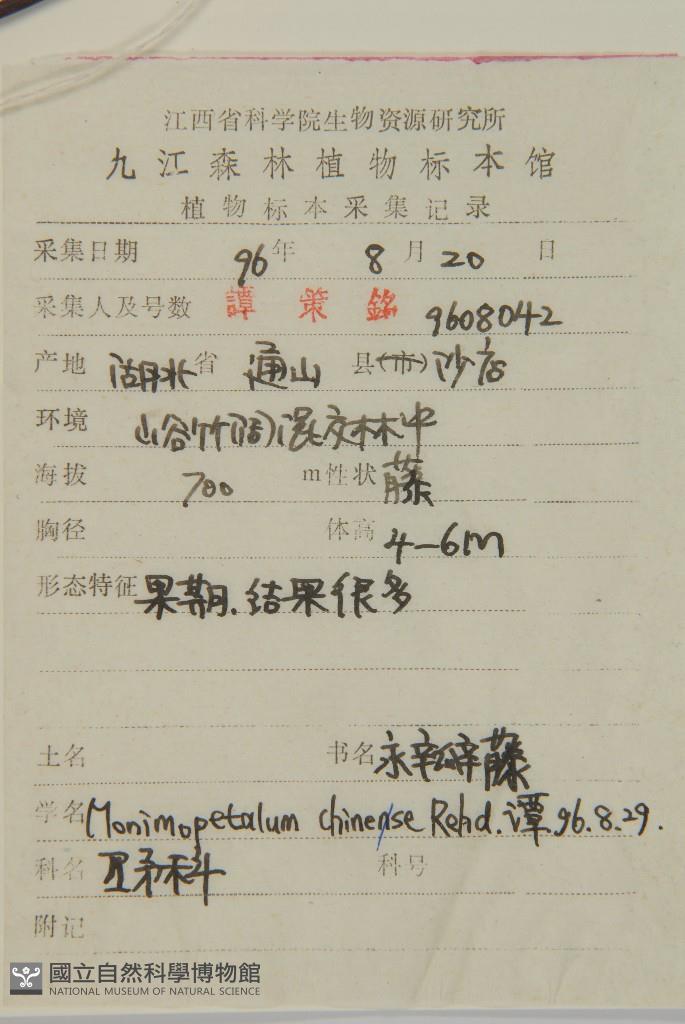 江西省科学院生物资源研究所
九江森林植物标本馆
植物标本采集记录
采集日期 96年 8月20日
采集人及号数 譚策銘 9608042
产地 湖北省 通山 县(市) 沙店
环境 山谷竹阔混交林中
海拔 700 m 性状 藤
胸径 体高 4-6m
形态特征 果期.结果很多
土名 书名 永瓣藤
学名 Monimopetalum chinense Rehd. 谭.96.8.29.
科名 卫矛科 科号
附记
國立自然科學博物館
NATIONAL MUSEUM OF NATURAL SCIENCE